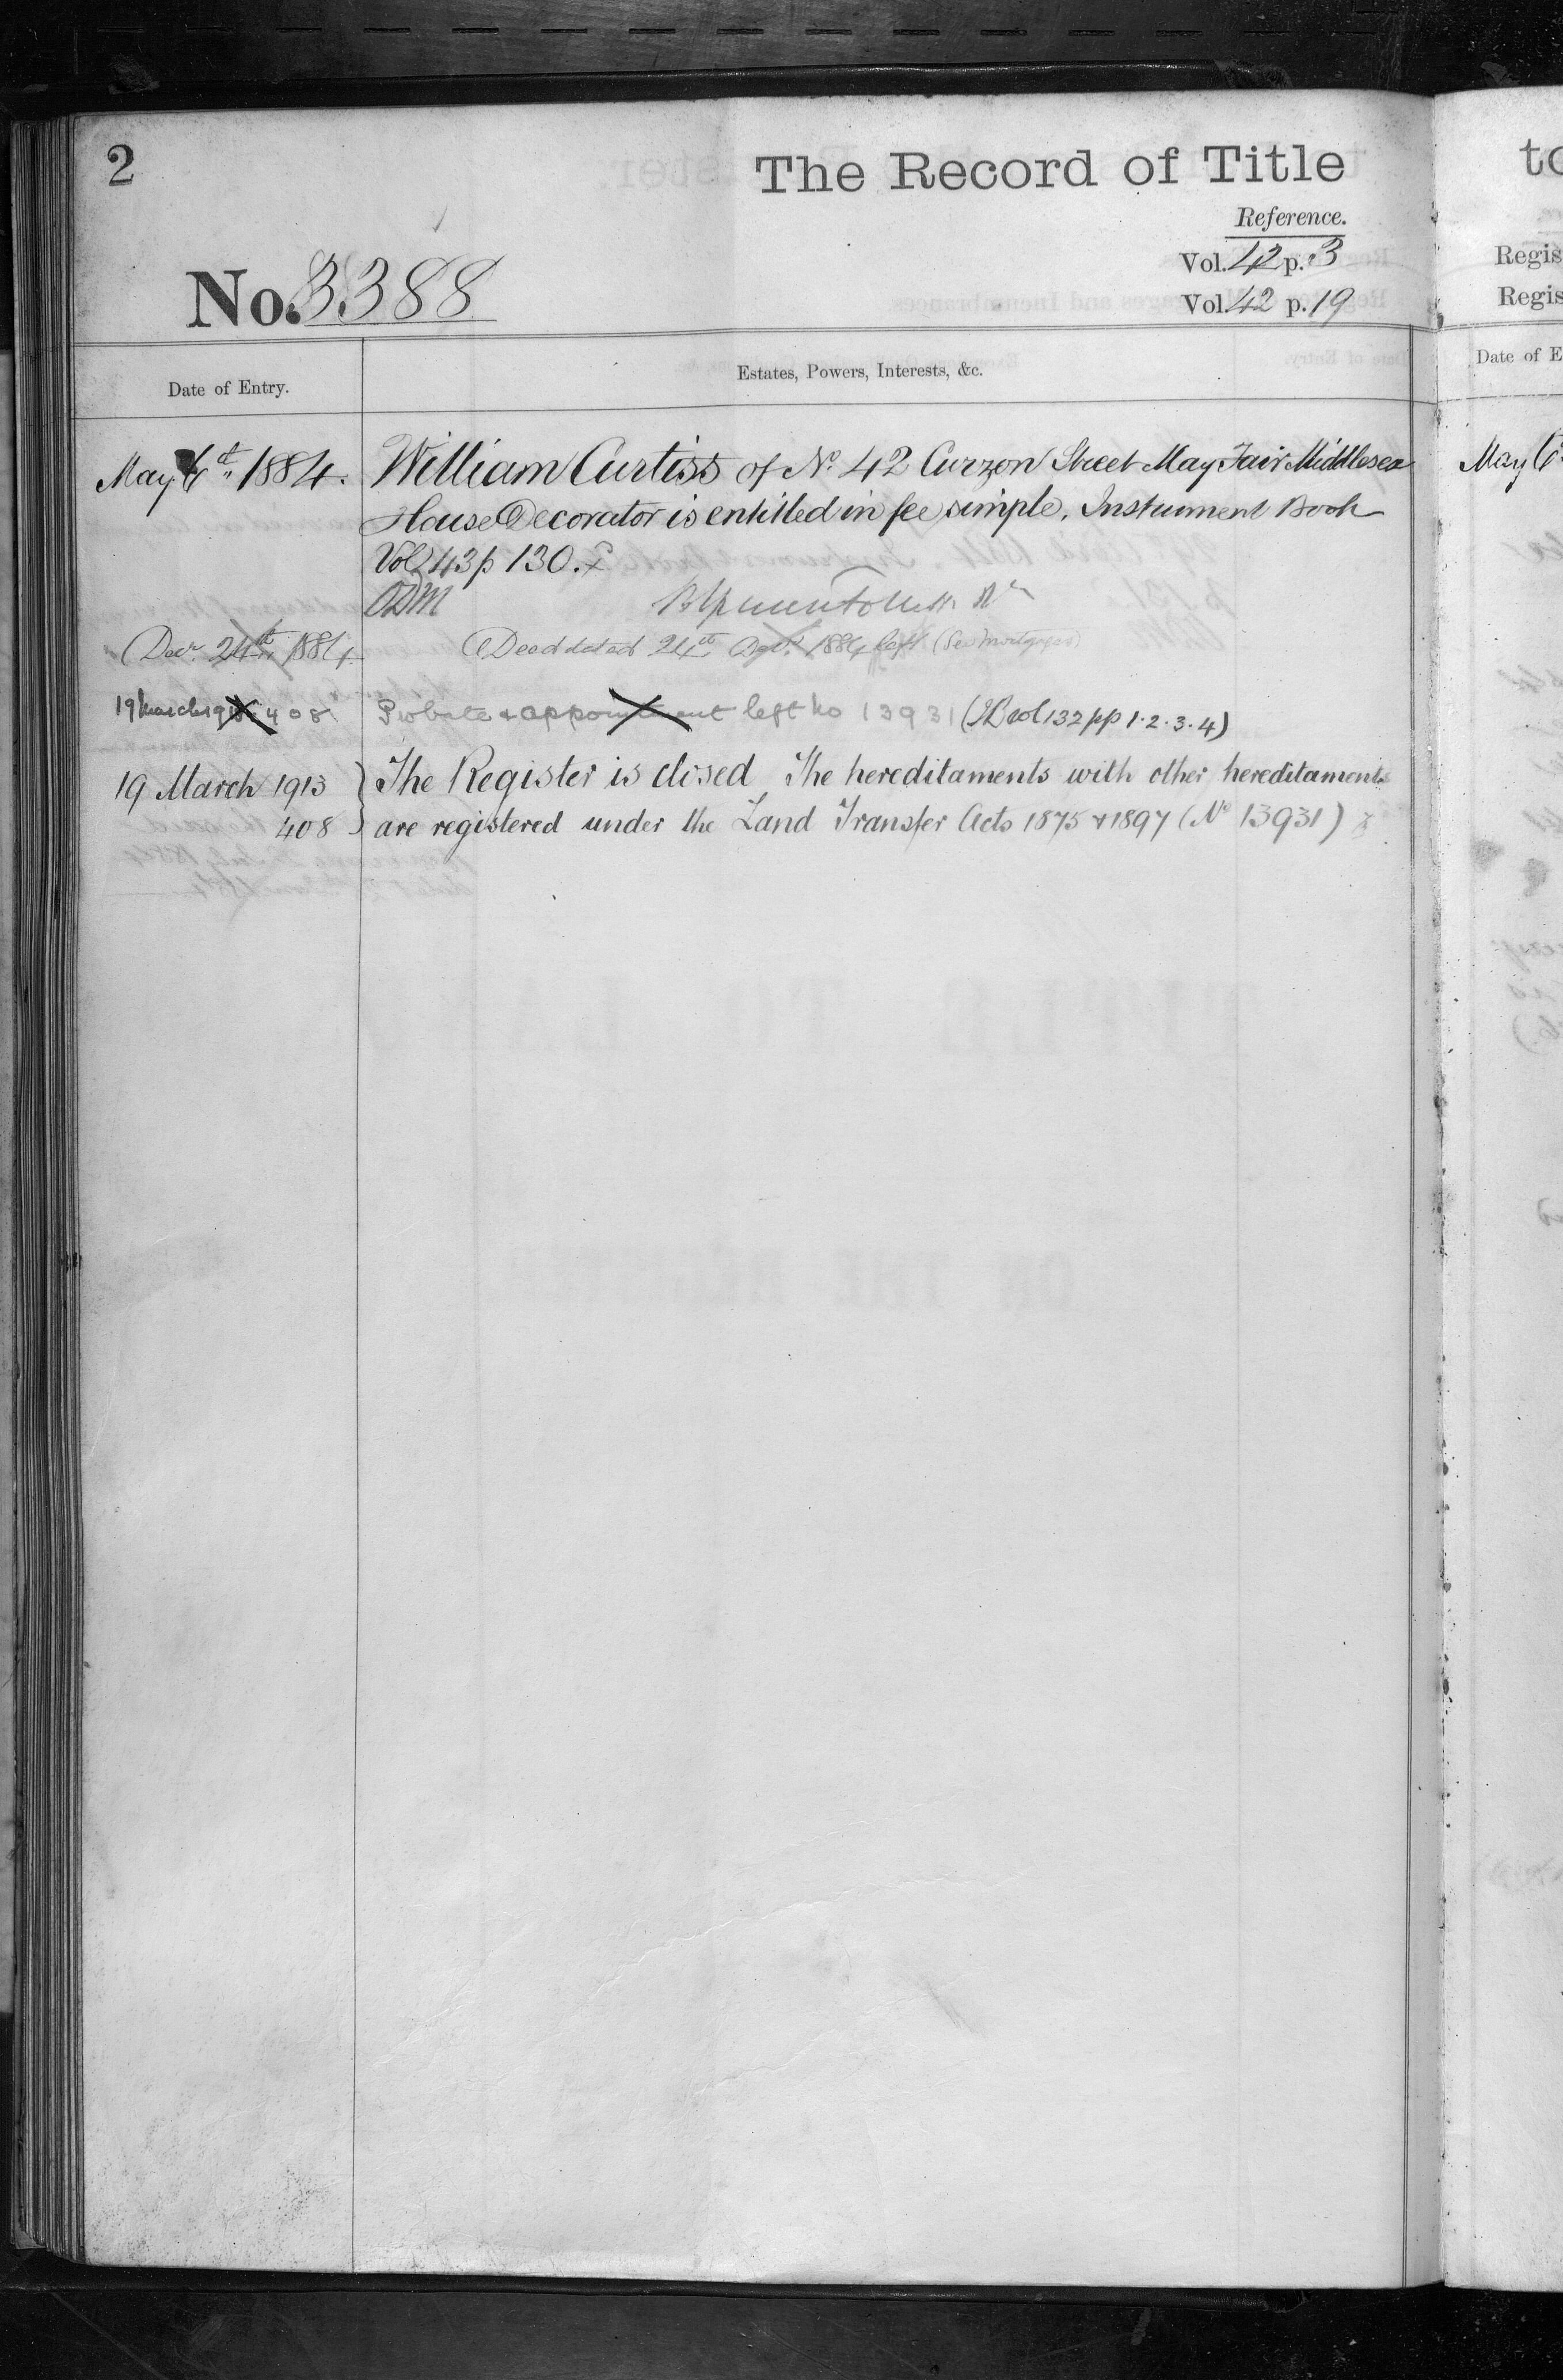 2
The Record of Title
Reference.
Vol. 42 p. 3
No. 3388
Vol. 42 p. 19
Date of Entry.
Estates, Powers, Interests, &c.
May 6th 1884.
William Curtiss of No. 42 Curzon Street May Fair Middlesex
House Decorator is entitled in fee simple. Instrument Book
Vol 43 p 130.
Decr. 24th 1884
Deed dated 24th 1884 left (See Mortgages)
19 March 19 408
Probate & appointment left No 13931 (IB vol 132 pp 1.2.3.4)
19 March 1913
The Register is closed The hereditaments with other hereditaments
408
are registered under the Land Transfer Acts 1875 & 1897 (No 13931)
to
Regis
Regis
Date of E
May 6